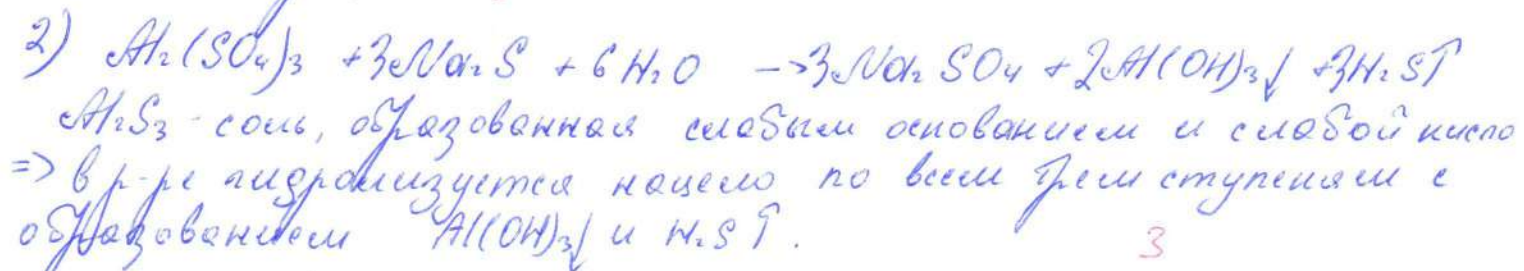 2) Al₂(SO₄)₃ + 3Na₂S + 6H₂O → 3Na₂SO₄ + 2Al(OH)₃↓ + 3H₂S↑
Al₂S₃ - соль, образованная слабым основанием и слабой кисло
=> в р-ре гидролизуется нацело по всем трем ступеням с
образованием Al(OH)₃↓ и H₂S↑.
3